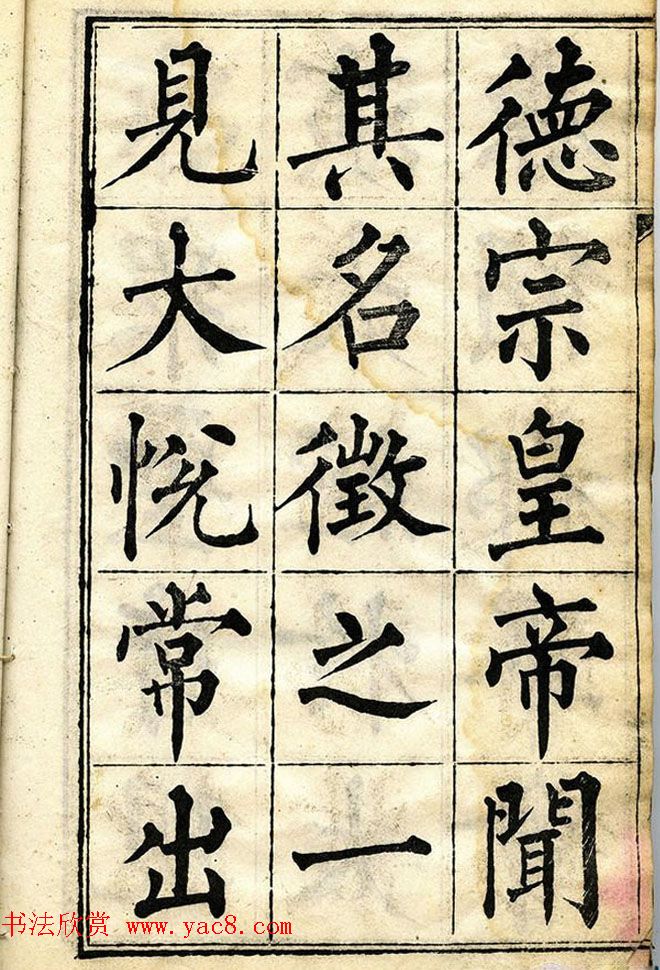 德宗皇帝聞
其名徵之一
見大悅常出
书法欣赏 www.yac8.com